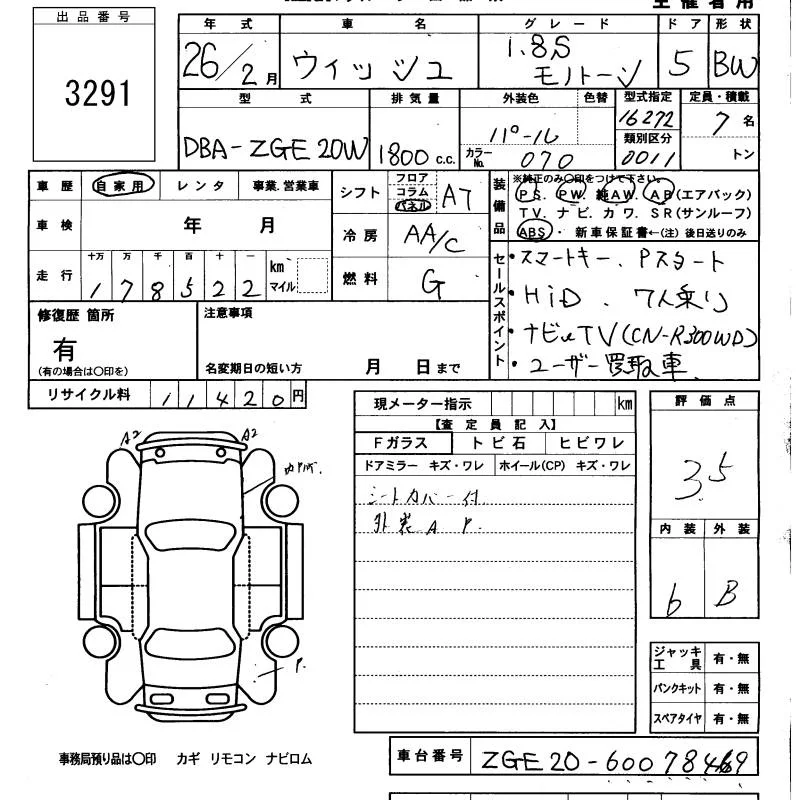 出品番号
3291
年式 車名 グレード ドア 形状
26/2月 ウィッシュ 1.8S モノトーン 5 BW
型式 排気量 外装色 色替 型式指定 定員・積載
DBA-ZGE20W 1800c.c. パール 16272 7名
カラーNo. 070 類別区分 0011 トン
車歴 自家用 レンタ 事業.営業車
車検 年 月
走行 十万 万 千 百 十 一 km マイル
1 7 8 5 2 2
シフト フロア コラム パネル A7
冷房 AA/C
燃料 G
装備品 ※純正のみ〇印をつけて下さい。
PS. PW. 純AW. AB(エアバック)
TV. ナビ. カワ. SR(サンルーフ)
ABS・ 新車保証書←(注)後日送りのみ
セールスポイント
・スマートキー、Pスタート
・HiD、7人乗り
・ナビ TV(CN-R300WD)
・ユーザー買取車
修復歴 箇所
有
(有の場合は〇印を)
注意事項
名変期日の短い方 月 日まで
リサイクル料 11420円
現メーター指示 km
【査定員記入】
Fガラス トビ石 ヒビワレ
ドアミラー キズ・ワレ ホイール(CP) キズ・ワレ
シートカバー付
外装 A P.
A2 A2
P.
評価点
3.5
内装 外装
b B
ジャッキ工具 有・無
パンクキット 有・無
スペアタイヤ 有・無
事務局預り品は〇印 カギ リモコン ナビロム
車台番号 ZGE20-60078469